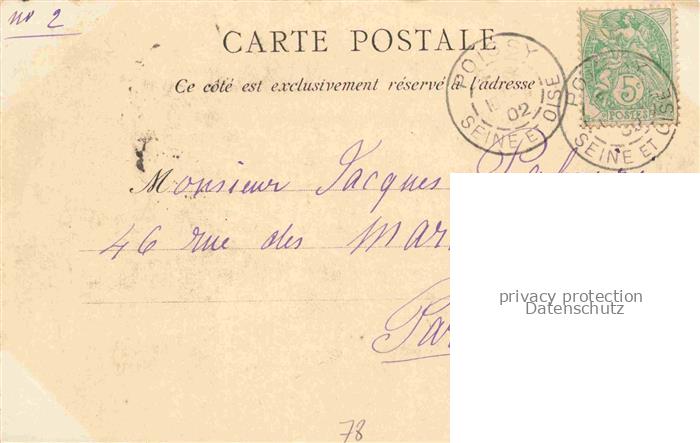 no 2
CARTE POSTALE
Ce côté est exclusivement réservé à l'adresse
POISSY
02
SEINE ET OISE
SEINE ET OISE
5c
POSTES
Monsieur Jacques
46 rue des
privacy protection
Datenschutz
78